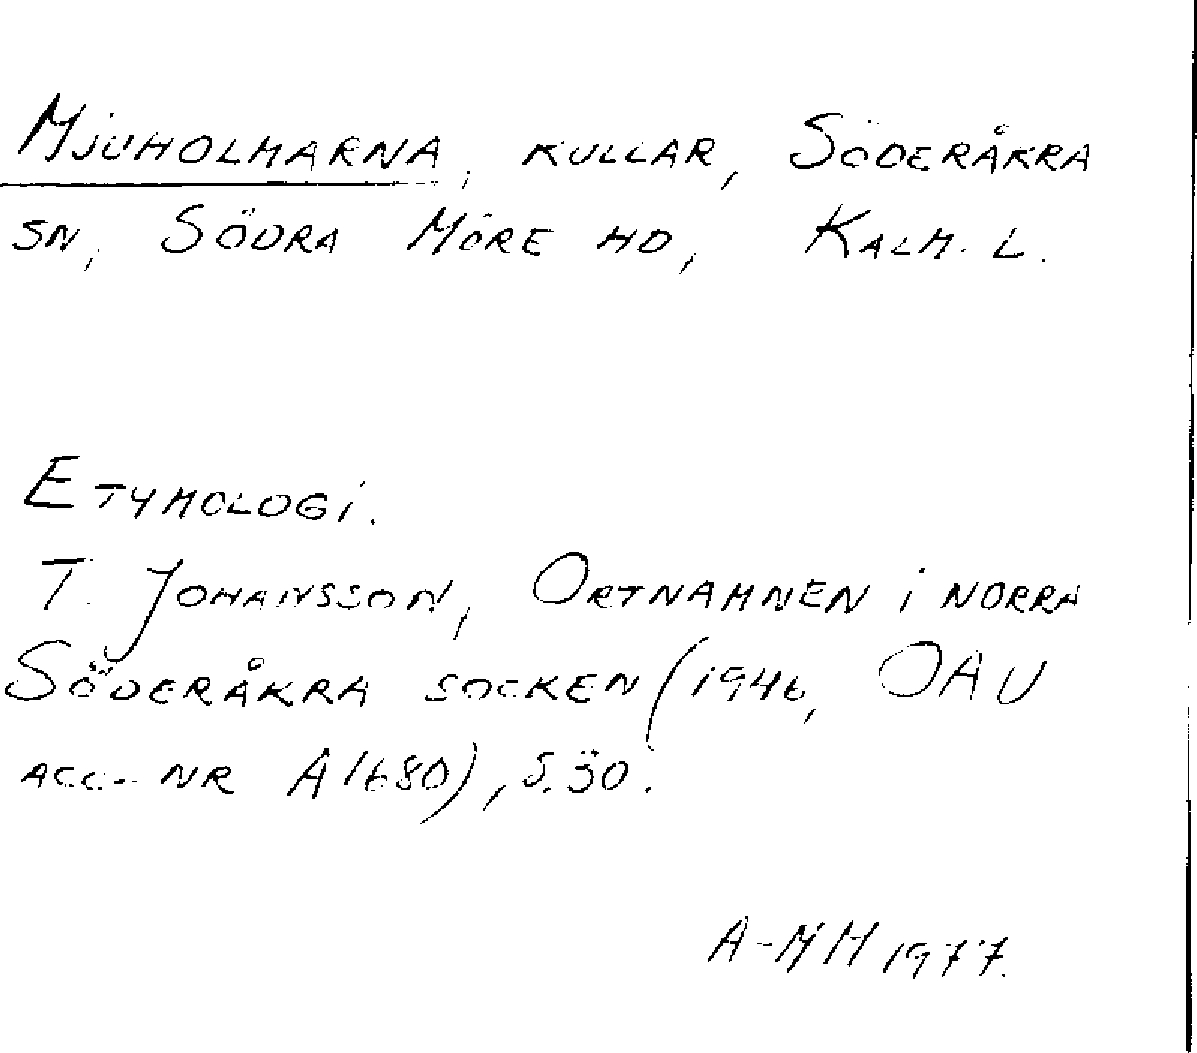 Mjuholmarna, kullar, Söderåkra
sn, Södra Möre hd, Kalm. l.
Etymologi.
T. Johansson, Ortnamnen i norra
Söderåkra socken (1946, OAU
acc.-nr A1680), s. 30.
A-MH 1977.